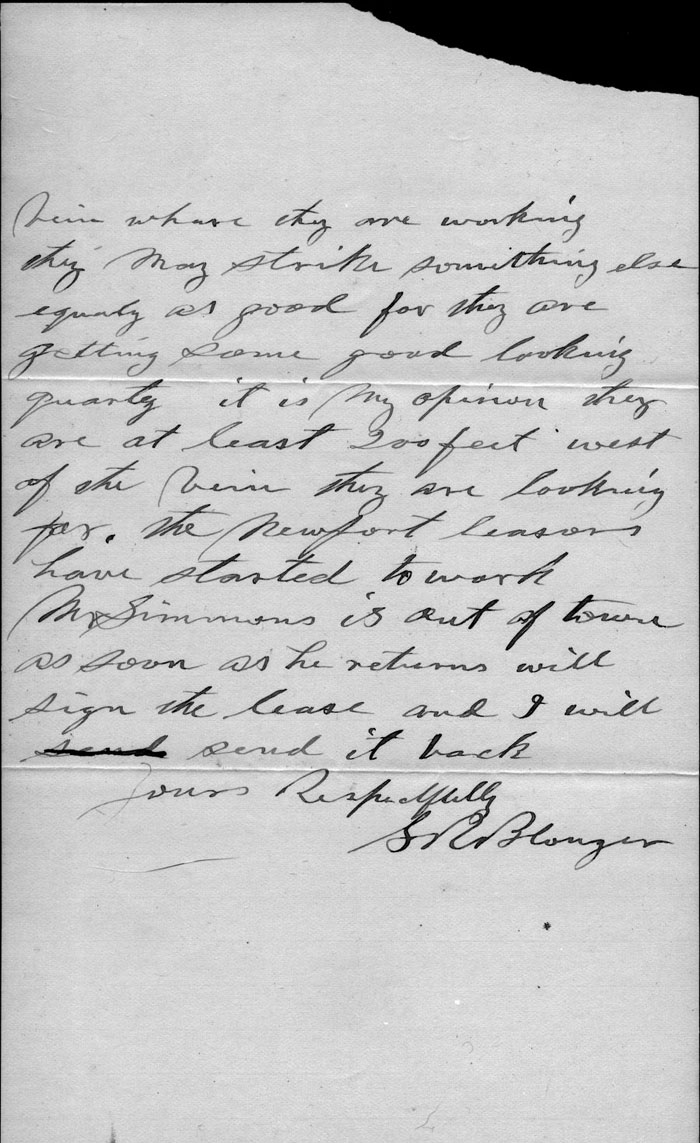 Vein whare they are working
they May strike something else
equaly as good for they are
getting some good looking
quartz it is My opinion they
are at least 200 feet west
of the Vein they are looking
for. the Newfort leasors
have started to work
Mr Simmons is out of town
as soon as he returns will
sign the lease and I will
send send it back
Yours Respectfully
Blonger